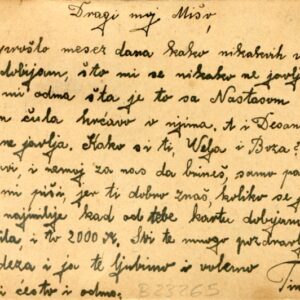 Dragi moj Mišo,
prošlo mesec dana kako nikakvih v
dobijam, što mi se nikako ne javlj
mi odma šta je to sa Nastasom
čula hrčavo v njima. A i Desan
ne javlja. Kako si ti, Velja i Boza?
i nemoj za nas da brineš, samo pa
mi piši, jer ti dobro znaš, koliko se j
najmilije kad od tebe kartu dobijam
ila, i to 2000 Din. Svi te mnogo pozdrav
deza i ja te ljubimo i volemo
i često i odma.
B23265